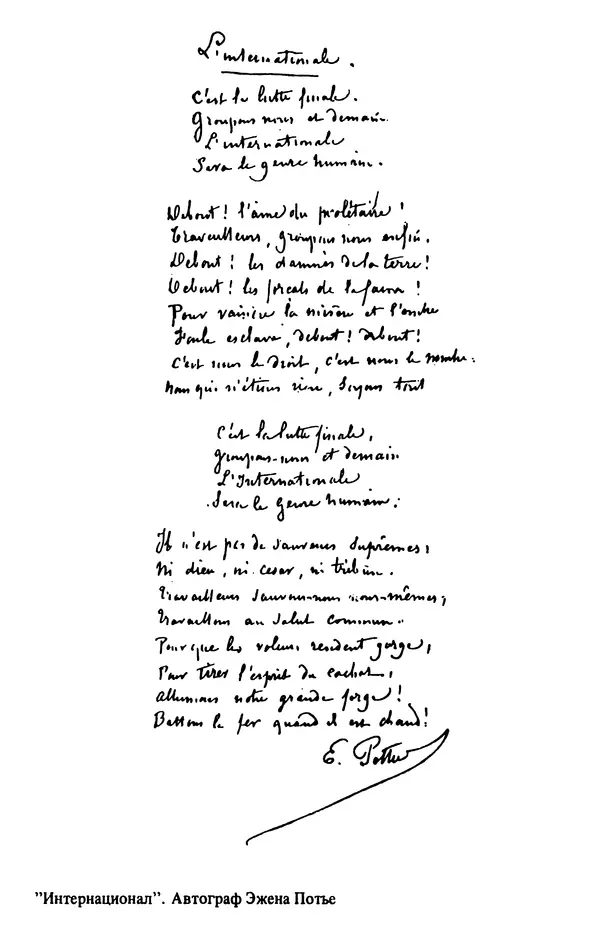 L'internationale.
C'est la lutte finale.
Groupons nous et demain
L'internationale
Sera le genre humain.
Debout! l'âme du prolétaire!
Travailleurs, groupons nous enfin.
Debout! les damnés de la terre!
Debout! les forçats de la faim!
Pour vaincre la misère et l'ombre
Foule esclave, debout! debout!
C'est nous le droit, c'est nous le nombre:
Nous qui n'étions rien, soyons tout
C'est la lutte finale,
Groupons-nous et demain
L'Internationale
Sera le genre humain.
Il n'est pas de sauveurs suprêmes:
Ni dieu, ni césar, ni tribun.
Travailleurs sauvons-nous nous-mêmes;
Travaillons au salut commun.
Pour que les voleurs rendent gorge,
Pour tirer l'esprit du cachot,
Allumons notre grande forge!
Battons le fer quand il est chaud!
E. Pottier
"Интернационал". Автограф Эжена Потье